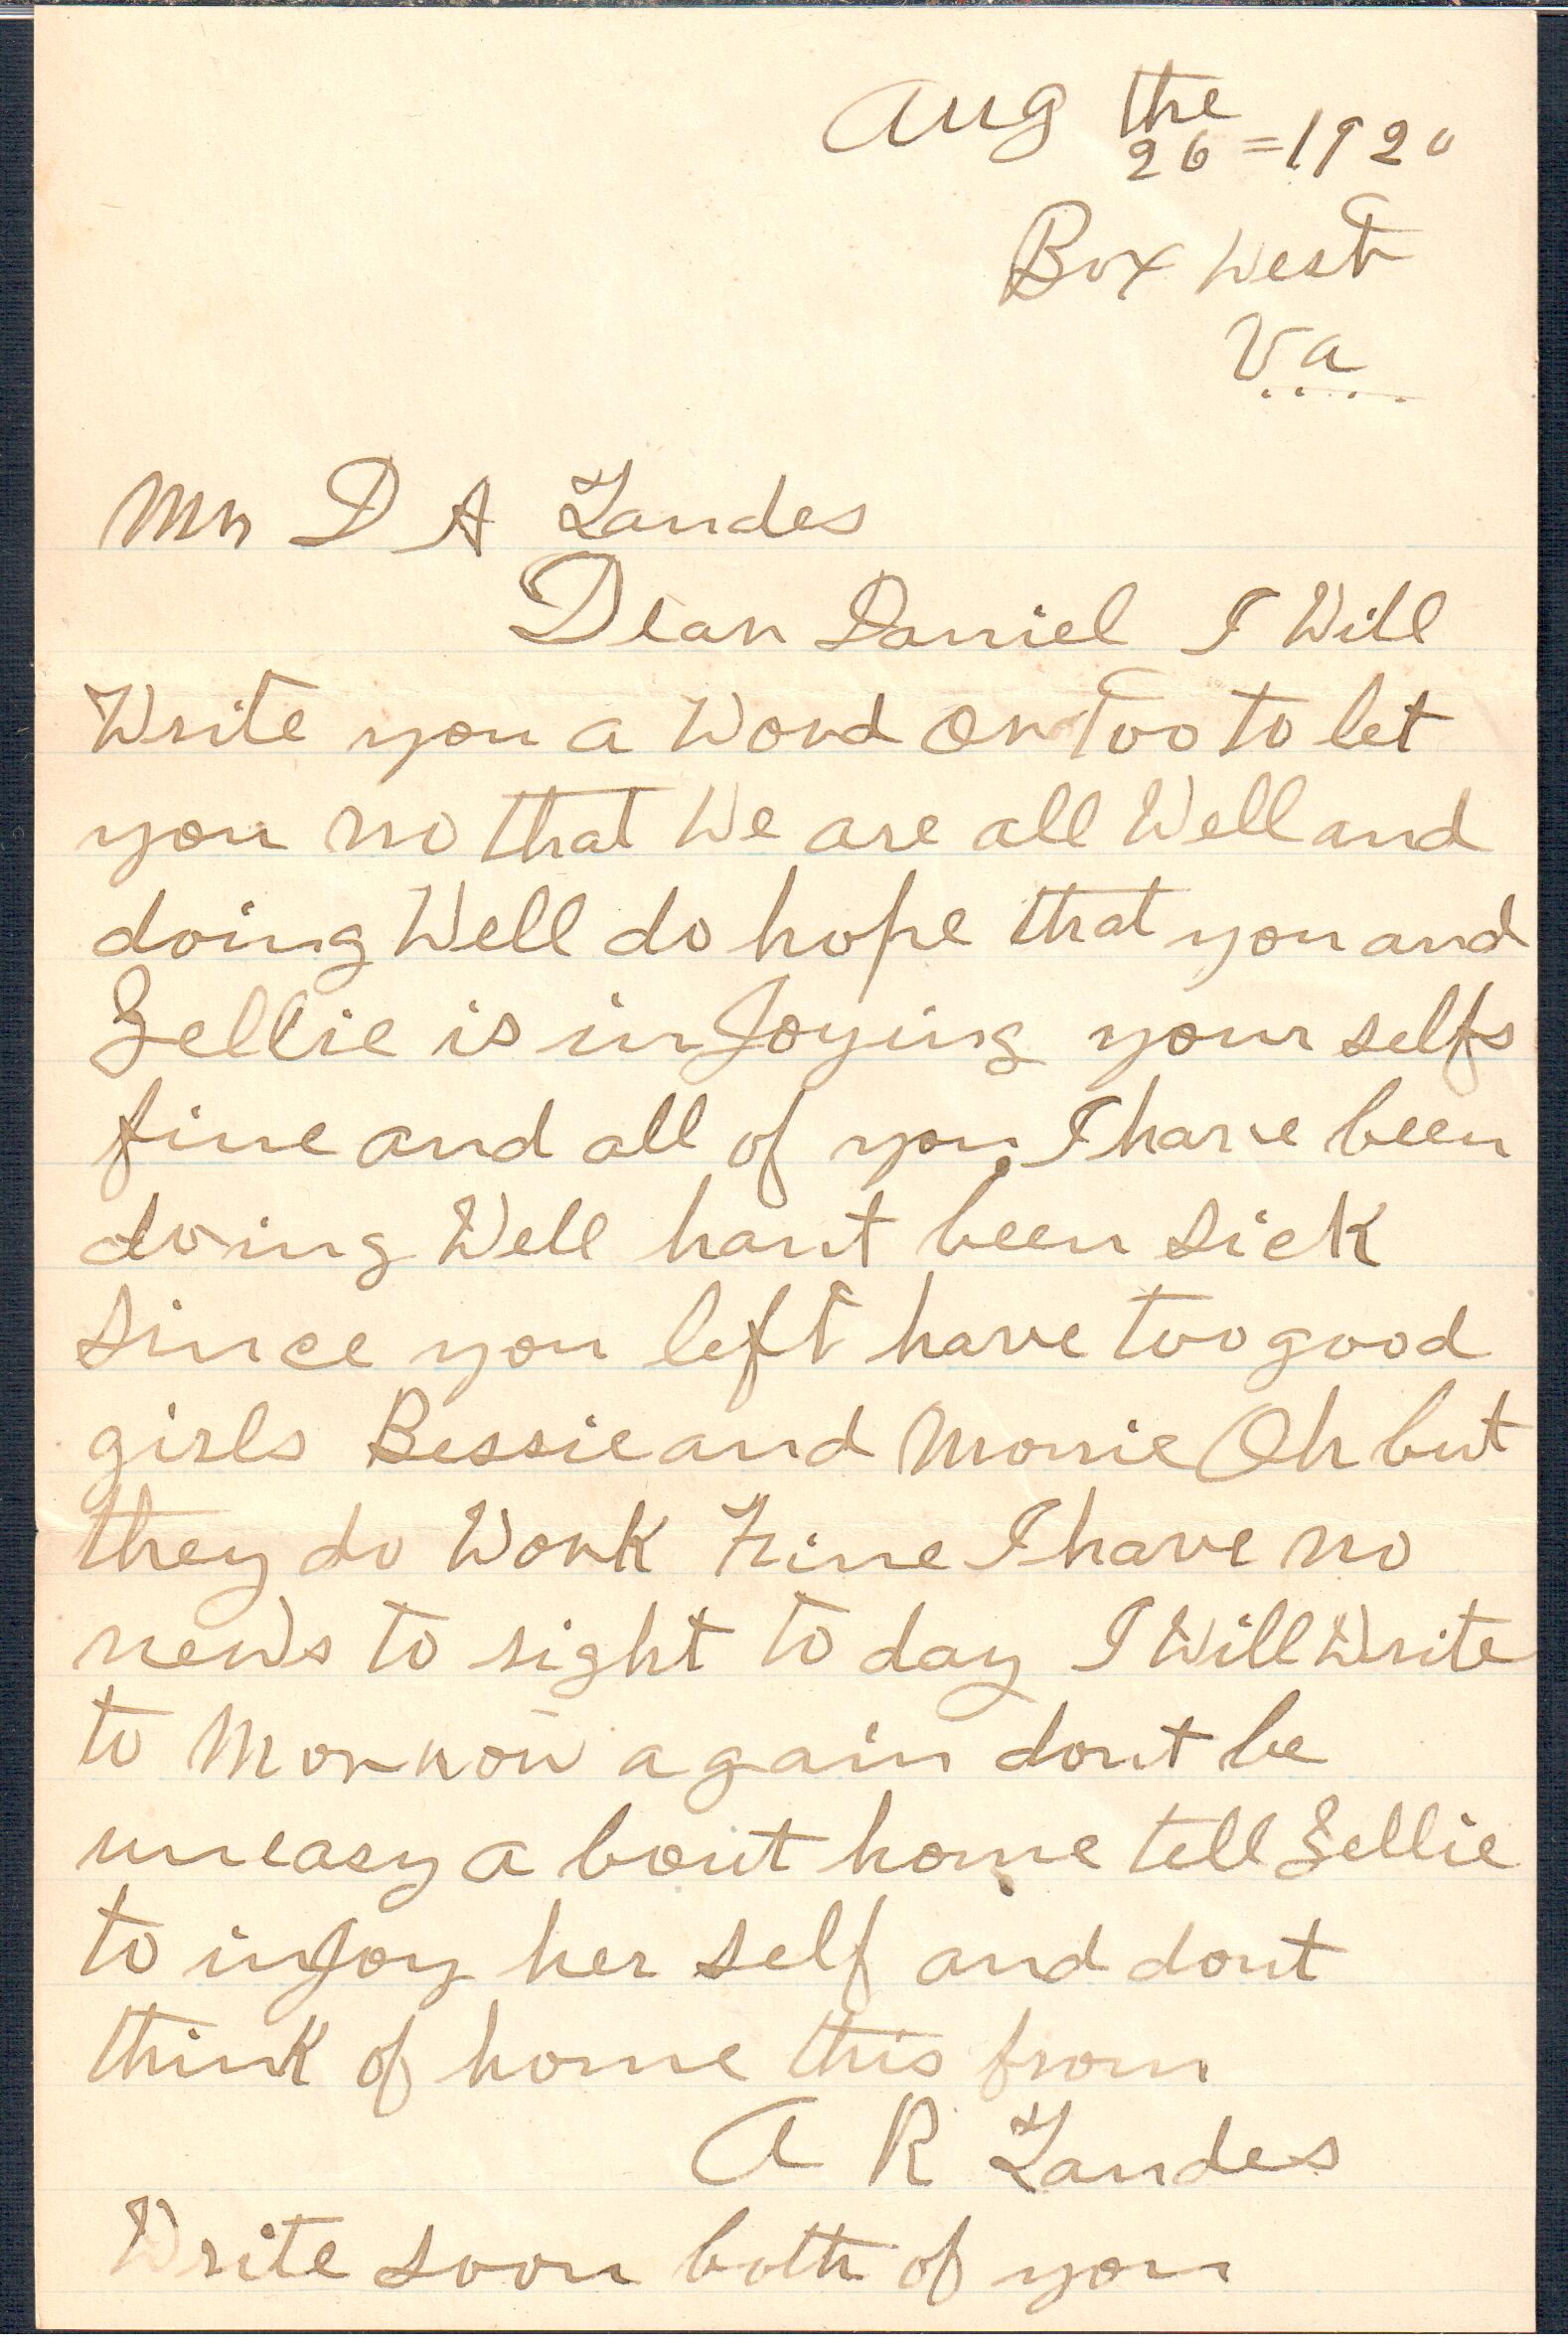 Aug the
26 = 1920
Box West
Va
Mr D A Landes
Dear Daniel I Will
Write you a Word or Too to let
you no that We are all Well and
doing Well do hope that you and
Zellie is in Joying your selfs
fine and all of you. I have been
doing Well hant been sick
since you left have too good
girls Bessie and Monie Oh but
they do Work Fine I have no
news to right to day I Will Write
to Morrow again dont be
uneasy a bout home tell Zellie
to inJoy her self and dont
think of home this from
A R Landes
Write soon both of you